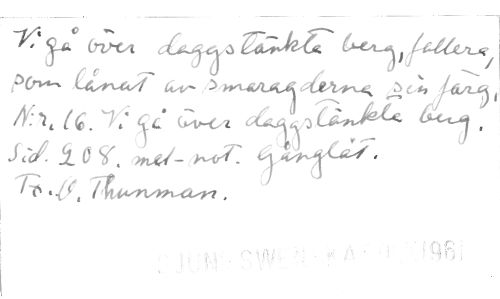 Vi gå över daggstänkta berg, fallera,
som lånat av smaragderna sin färg.
N:r. 16. Vi gå över daggstänkta berg.
Sid. 208. mel-not. Gånglåt.
Tx. O. Thunman.